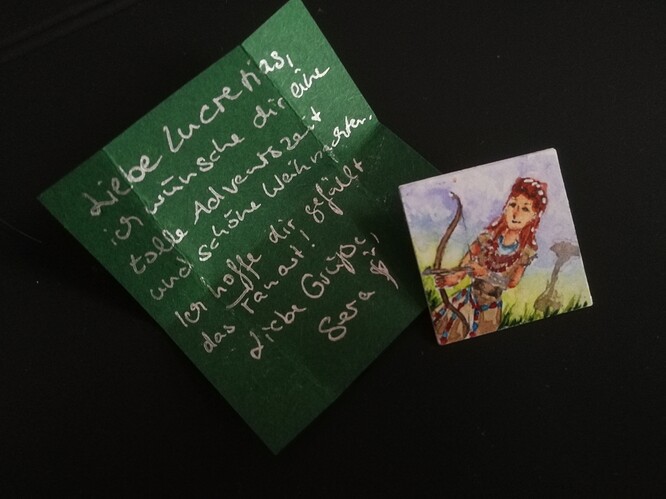 Liebe Lucretias,
ich wünsche dir eine
tolle Adventszeit
und schöne Weihnachten.
Ich hoffe dir gefällt
das Fanart!
Liebe Grüße,
Sera